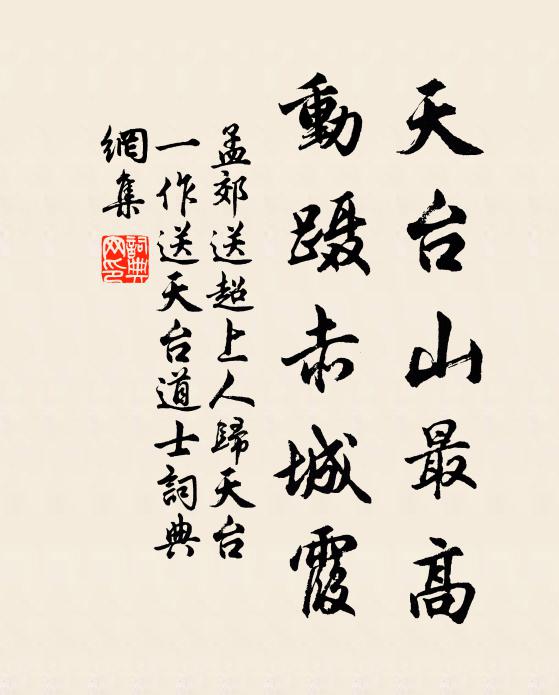 天台山最高
動蹑赤城霞
孟郊送超上人歸天台
一作送天台道士詞典
網集
詞典
网印